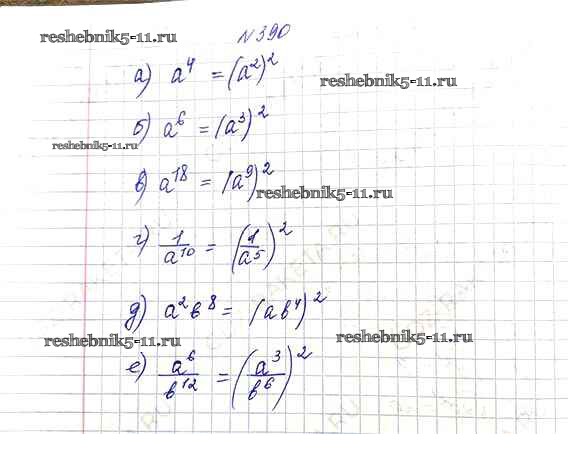 reshebnik5-11.ru
№390
а) a⁴ = (a²)²
reshebnik5-11.ru
б) a⁶ = (a³)²
reshebnik5-11.ru
в) a¹⁸ = (a⁹)²
reshebnik5-11.ru
г) 1/a¹⁰ = (1/a⁵)²
д) a²b⁸ = (ab⁴)²
reshebnik5-11.ru
reshebnik5-11.ru
е) a⁶/b¹² = (a³/b⁶)²